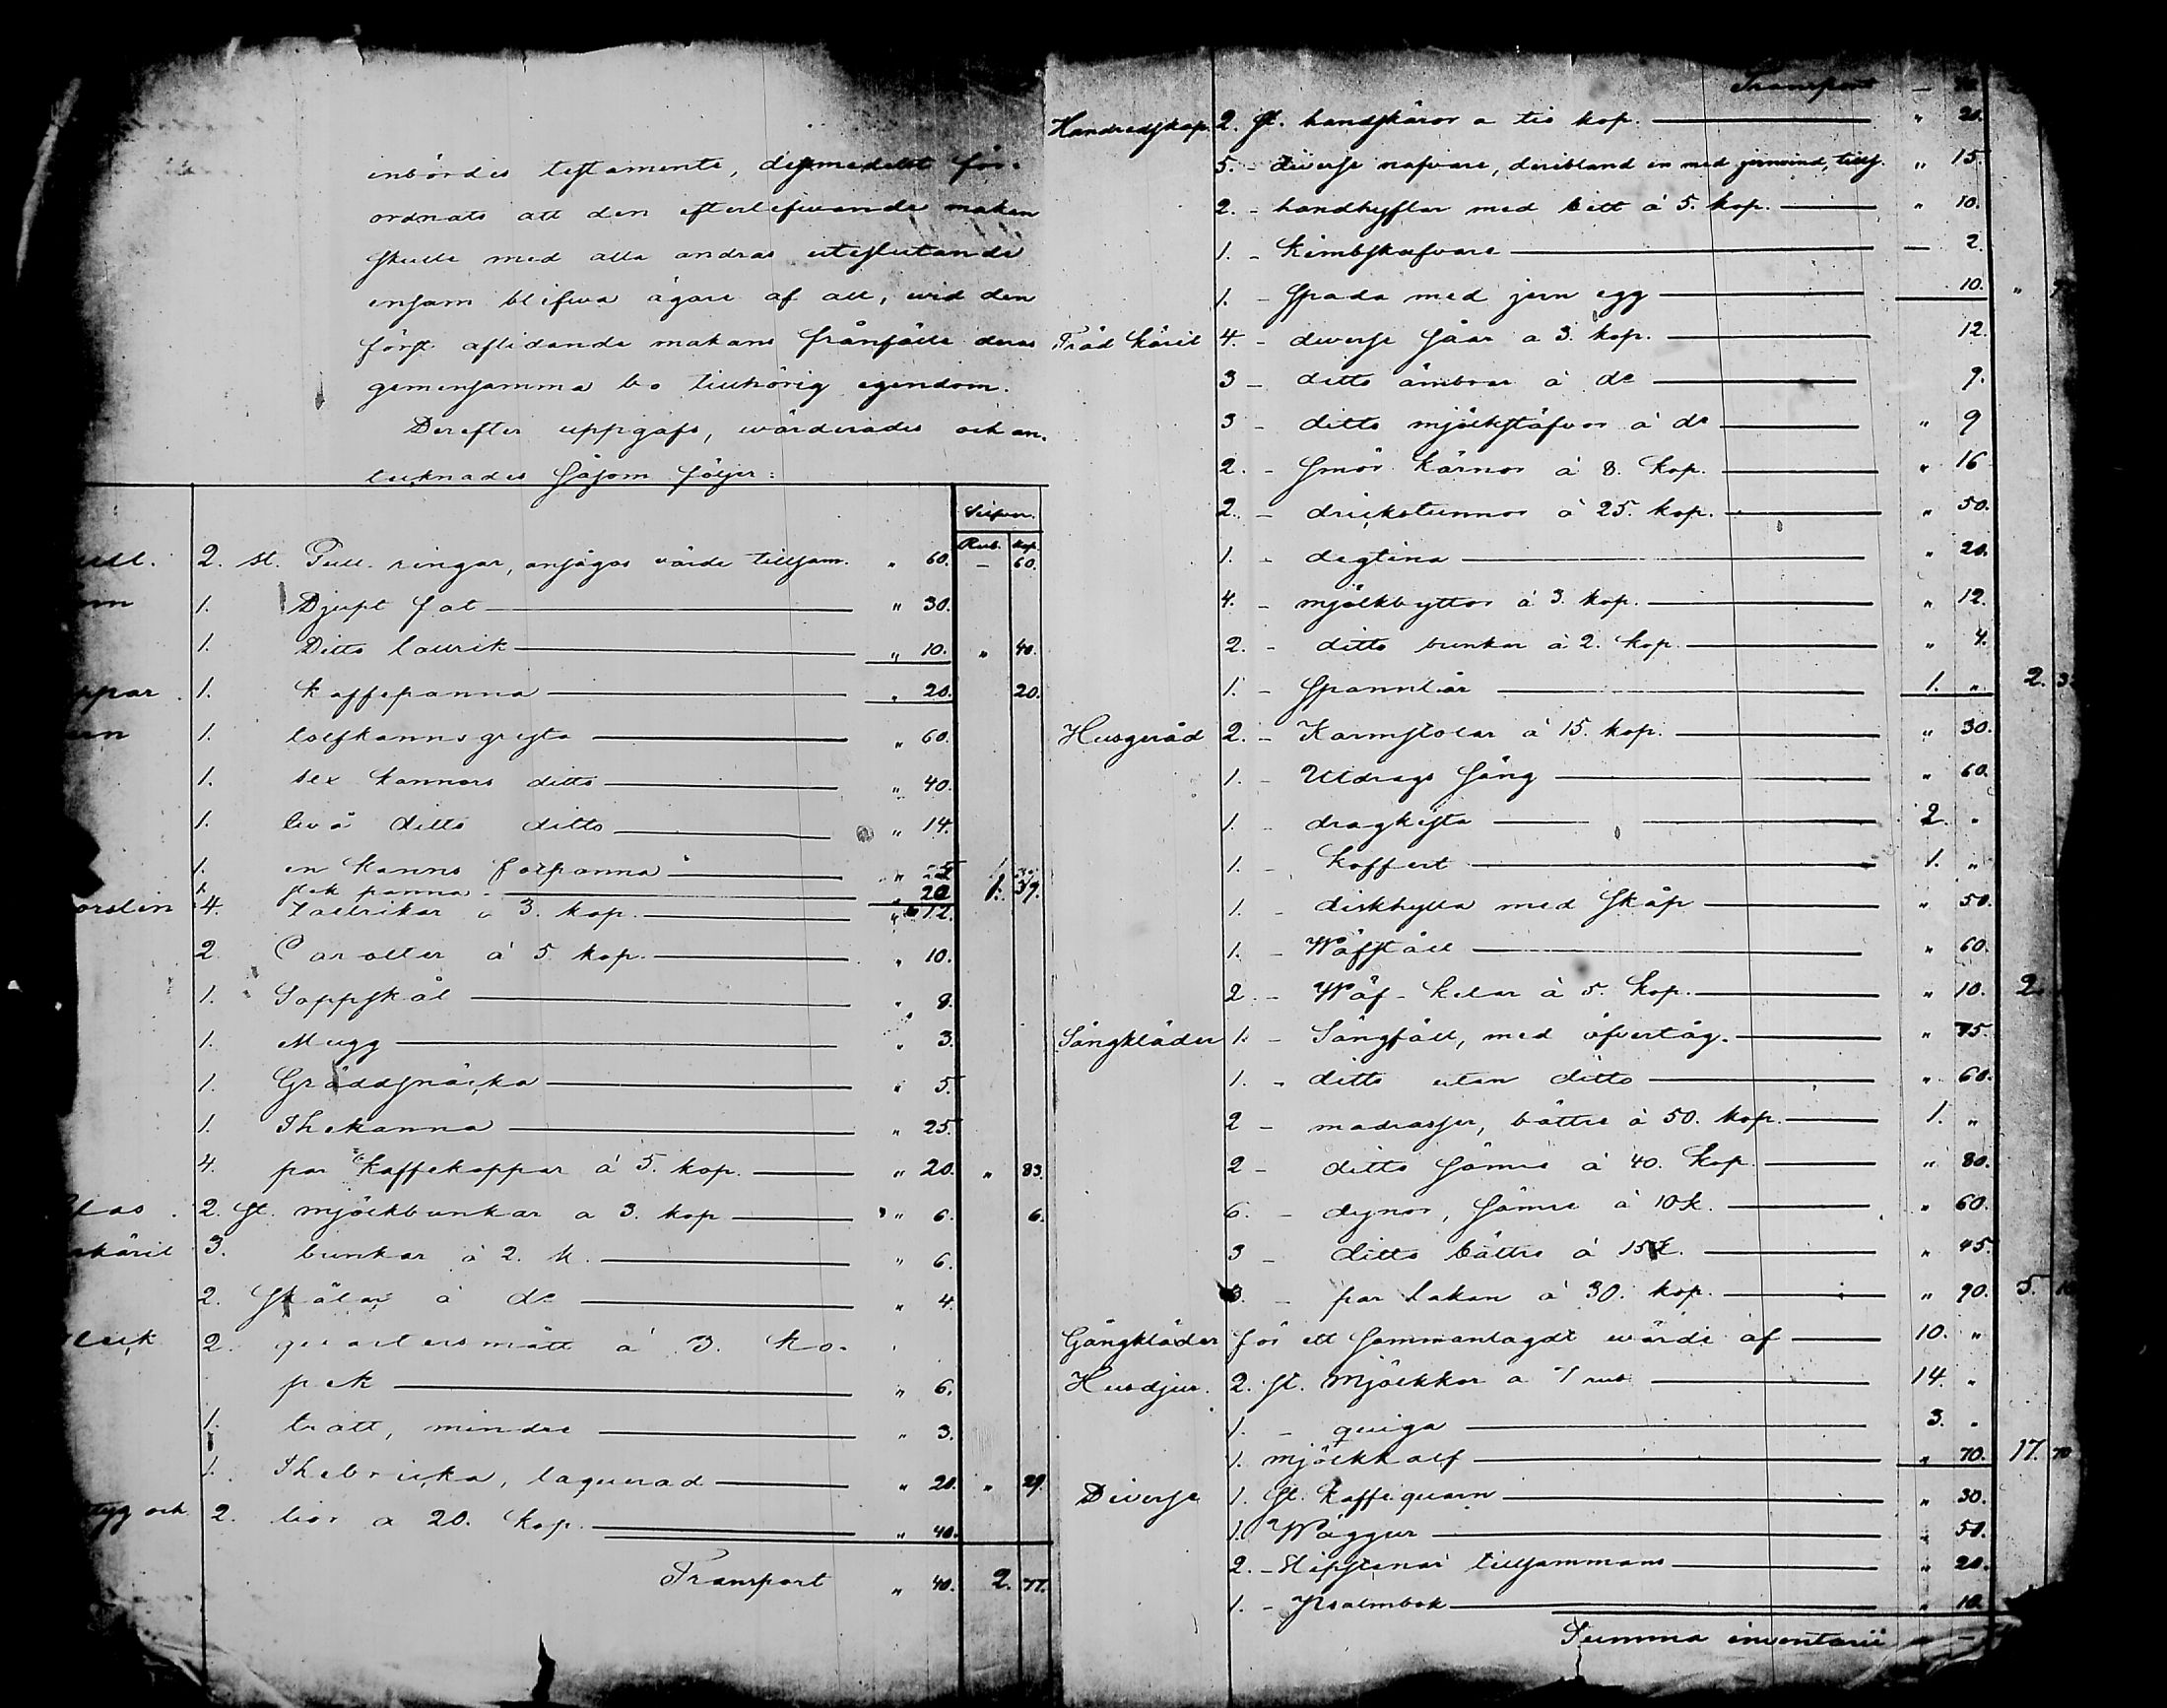 inbördes testamente, dessmedelst för-
ordnats att den efterlefwande maken
skulle med alla andras uteslutande
ensam blifwa ägare af all, wid den
först aflidande makans frånfälle deras
gemensamma bo tillhörig egendom.
Derefter uppgafs, wärderades och an-
tecknades såsom följer:
Silfver.
Rub. kop.
2. st. Gull ringar, ansågos värde tillsam. " 60. — 60.
1. Djupt fat " 30.
1. Ditto talrik " 10. " 40.
1. Kaffepanna " 20. 20.
1. tolfkannsgryta " 60.
1. sex kannors ditto " 40.
1. två ditto ditto " 14.
1. en kanns fotpanna "
1. stek panna " 20 1. 39.
orslin 4. Talrikar a 3. kop. " 12.
2 Carotter à 5 kop. " 10.
1. Soppskål " 8.
1. Mugg " 3.
1. Gräddsnäcka " 5.
1. Thekanna " 25.
4. par Kaffekoppar à 5. kop. " 20. " 83.
las. 2. st. mjölkbunkar a 3. kop " 6. 6.
käril 3. bunkar à 2. k. " 6.
2. Skålar à do " 4.
leck 2. qvartersmått à 3. ko-
pek " 6.
1. tratt, mindre " 3.
1. Thebricka, laquerad " 20. " 29.
tyg och 2. lior a 20. kop. " 40.
Transport " 40. 2. 77.
Transport —
Handredskap. 2. st. handskäror a tio kop. " 20.
5. - diverse nafware, deribland en med jernwind, tills. " 15.
2. - handhyflar med bett à 5. kop. " 10.
1. - Kimbskafvare — 2.
1. - Spada med jern egg 10. "
Träd käril 4. - diverse Såar a 3. kop. 12.
3 - ditto ämbrar à do 9.
3 - ditto mjölkstäfvor à do " 9
2. - Smör kärnor à 8. kop. " 16
2. - drickstunnor à 25. kop. " 50.
1. - degtina " 20.
4. - mjölkbyttor à 3. kop. " 12.
2. - ditto bunkar à 2. kop. " 4.
1. - Spannlår 1. " 2. 3
Husgeråd 2. - Karmstolar à 15. kop. " 30.
1. - Utdrags Säng " 60.
1. - dragkista 2. "
1. - Koffert 1. "
1. - diskhylla med Skåp " 50.
1. - Wäfställ " 60.
2. - Wäf-skelar à 5. kop. " 10. 2.
Sängkläder 1. - Sängfäll, med öfvertåg. " 75.
1. - ditto utan ditto " 60.
2 - madrasser, bättre à 50. kop. 1. "
2 - ditto Sämre à 40. kop. " 80.
6. - dynor, Sämre à 10 k. " 60.
3 - ditto bättre à 15 k. " 45.
3. - par lakan à 30. kop. " 90. 5. 10
Gångkläder för ett Sammanlagdt wärde af 10. "
Husdjur. 2. st. Mjölkkor a 7 rub 14. "
1. - quiga 3. "
1. mjölkkalf " 70. 17. 70
Diverse 1. st. Kaffequarn " 30.
1. Wäggur " 50.
2. - Slipstenar tillsammans " 20.
1. - Psalmbok " 10.
Summa inventarii